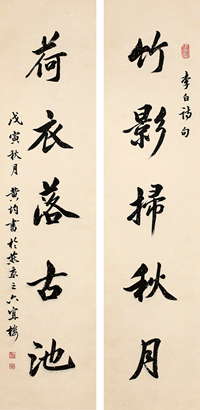 竹影掃秋月
李白詩句
荷衣落古池
戊寅秋月黄均書於燕京之六宜樓